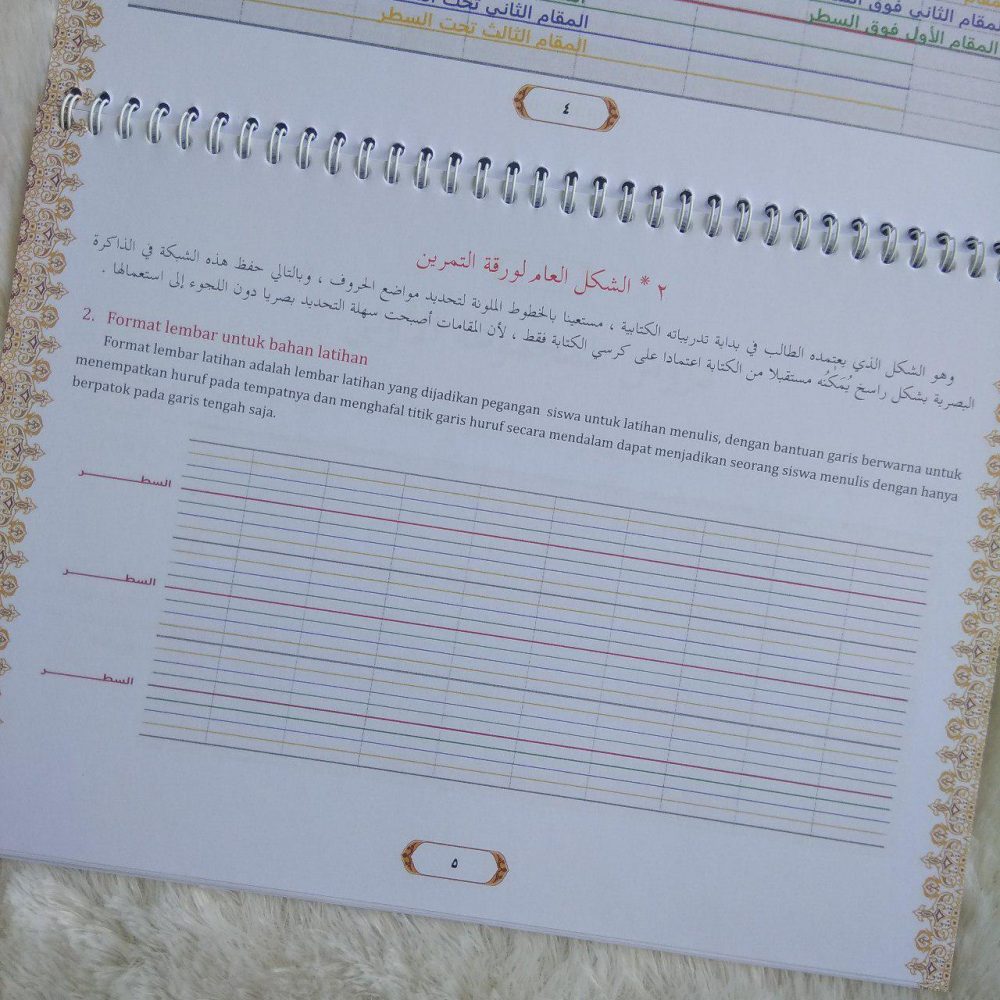 المقام الثاني فوق
المقام الأول فوق السطر
المقام الثاني تحت
المقام الثالث تحت السطر
٤
٢ * الشكل العام لورقة التمرين
وهو الشكل الذي يعتمده الطالب في بداية تدريباته الكتابية ، مستعينا بالخطوط الملونة لتحديد مواضع الحروف ، وبالتالي حفظ هذه الشبكة في الذاكرة
البصرية بشكل راسخ يُمَكِّنُه مستقبلا من الكتابة اعتمادا على كرسي الكتابة فقط ، لأن المقامات أصبحت سهلة التحديد بصريا دون اللجوء إلى استعمالها .
2. Format lembar untuk bahan latihan
Format lembar latihan adalah lembar latihan yang dijadikan pegangan siswa untuk latihan menulis, dengan bantuan garis berwarna untuk
menempatkan huruf pada tempatnya dan menghafal titik garis huruf secara mendalam dapat menjadikan seorang siswa menulis dengan hanya
berpatok pada garis tengah saja.
السطـــــــــر
السطـــــــــر
السطـــــــــر
٥